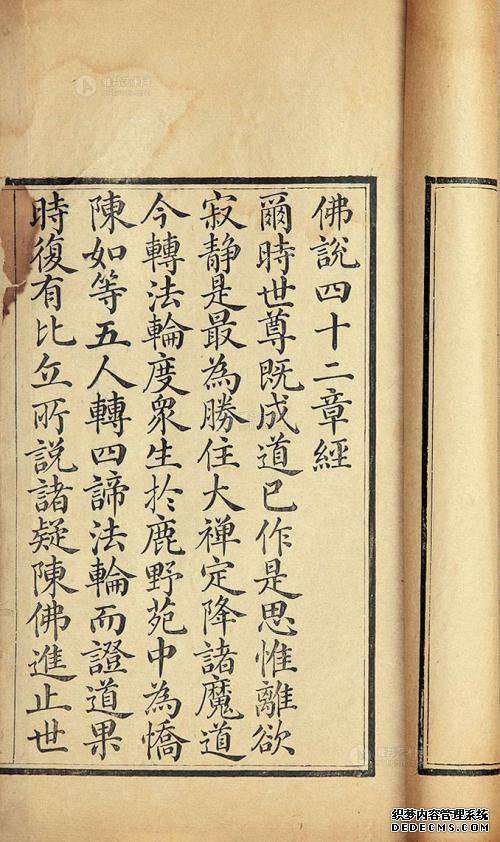 佛說四十二章經
爾時世尊既成道已作是思惟離欲
寂静是最為勝住大禪定降諸魔道
今轉法輪度衆生於鹿野苑中為憍
陳如等五人轉四諦法輪而證道果
時復有比丘所說諸疑陳佛進止世
织梦内容管理系统
DEDECMS.COM